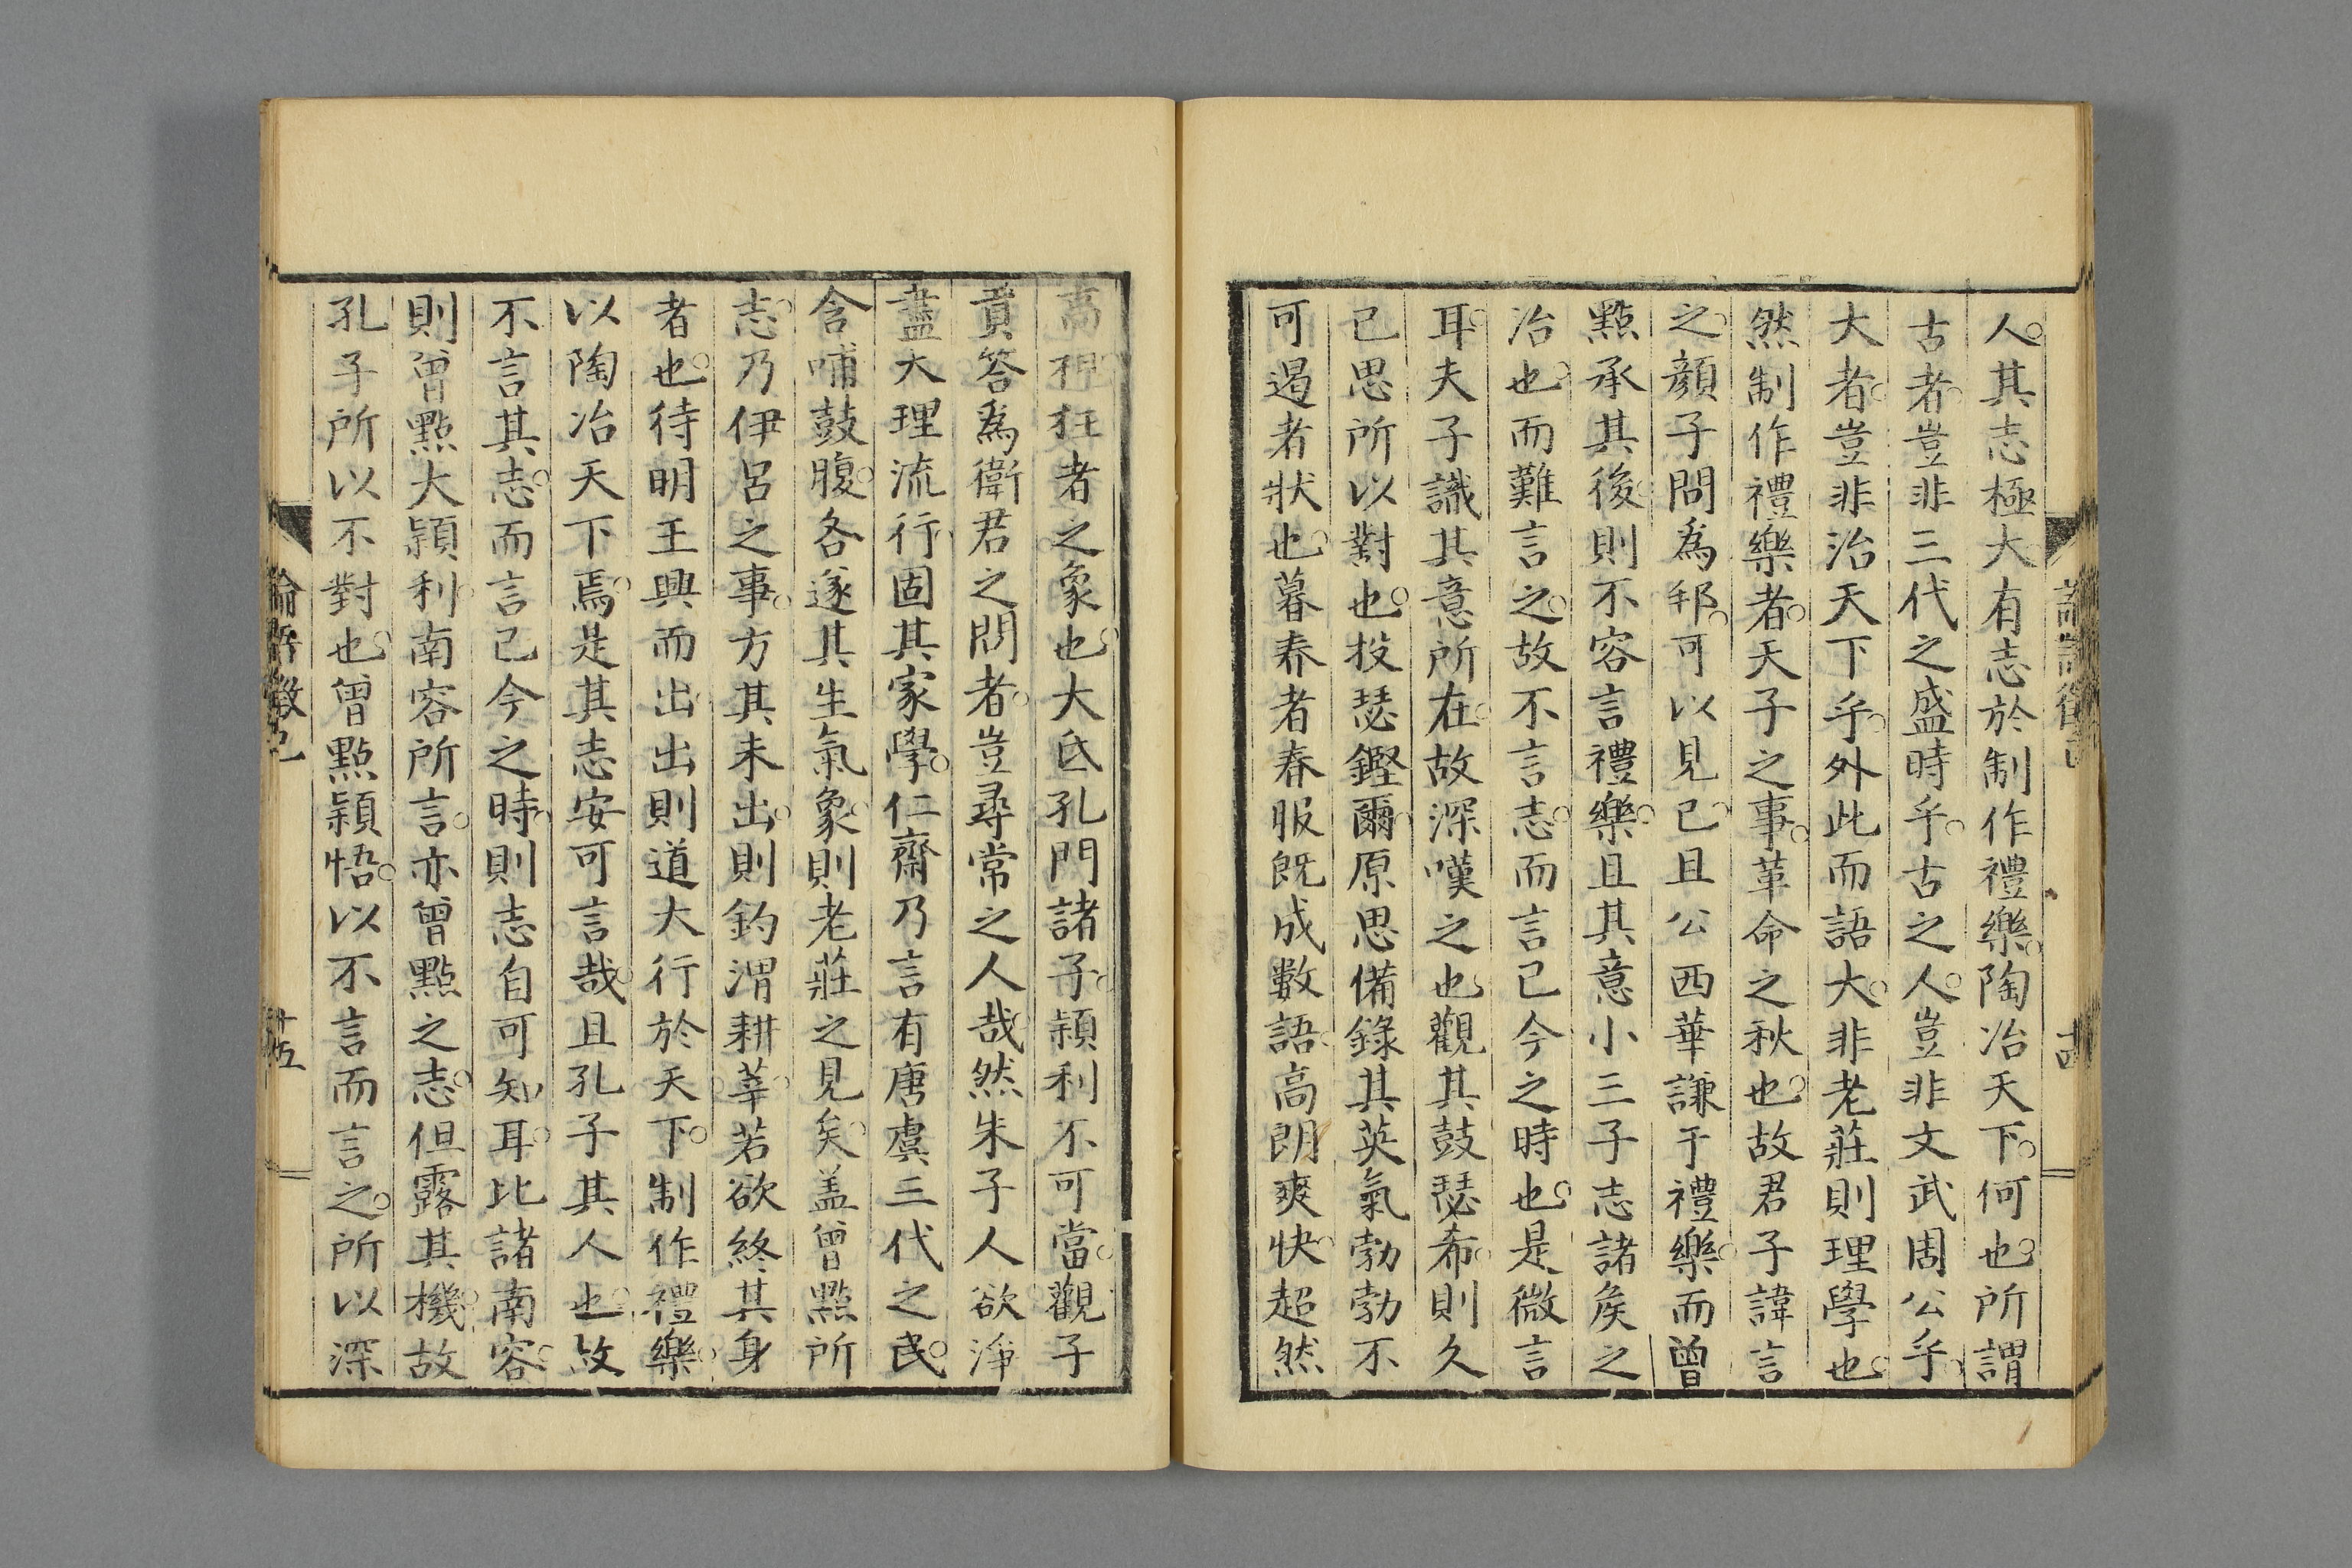 人。其志極大。有志於制作禮樂。陶冶天下。何也。所謂
古者。豈非三代之盛時乎。古之人。豈非文武周公乎。
大者。豈非治天下乎。外此而語大。非老莊則理學也。
然制作禮樂者。天子之事。革命之秋也。故君子諱言
之。顏子問為邦。可以見已。且公西華謙于禮樂。而曾
點承其後。則不容言禮樂。且其意小三子志諸矦之
治也。而難言之。故不言志。而言已今之時也。是微言
耳。夫子識其意所在。故深嘆之也。觀其鼓瑟希。則久
已思所以對也。投瑟鏗爾。原思備錄其英氣勃勃不
可遏者狀也。暮春者春服既成數語。高朗爽快。超然
高視。狂者之象也。大氐孔門諸子。穎利不可當。觀子
貢答為衛君之問者。豈尋常之人哉。然朱子人欲淨
盡。大理流行。固其家學。仁齋乃言有唐虞三代之民。
含哺鼓腹。各遂其生氣象。則老莊之見矣。盖曾點所
志。乃伊呂之事。方其未出。則釣渭耕莘。若欲終其身
者也。待明王興而出。出則道大行於天下。制作禮樂。
以陶冶天下焉。是其志安可言哉。且孔子其人也。故
不言其志。而言己今之時。則志自可知耳。比諸南容。
則曾點大穎利。南容所言。亦曾點之志。但露其機。故
孔子所以不對也。曾點穎悟。以不言而言之。所以深
論語徵己
十五